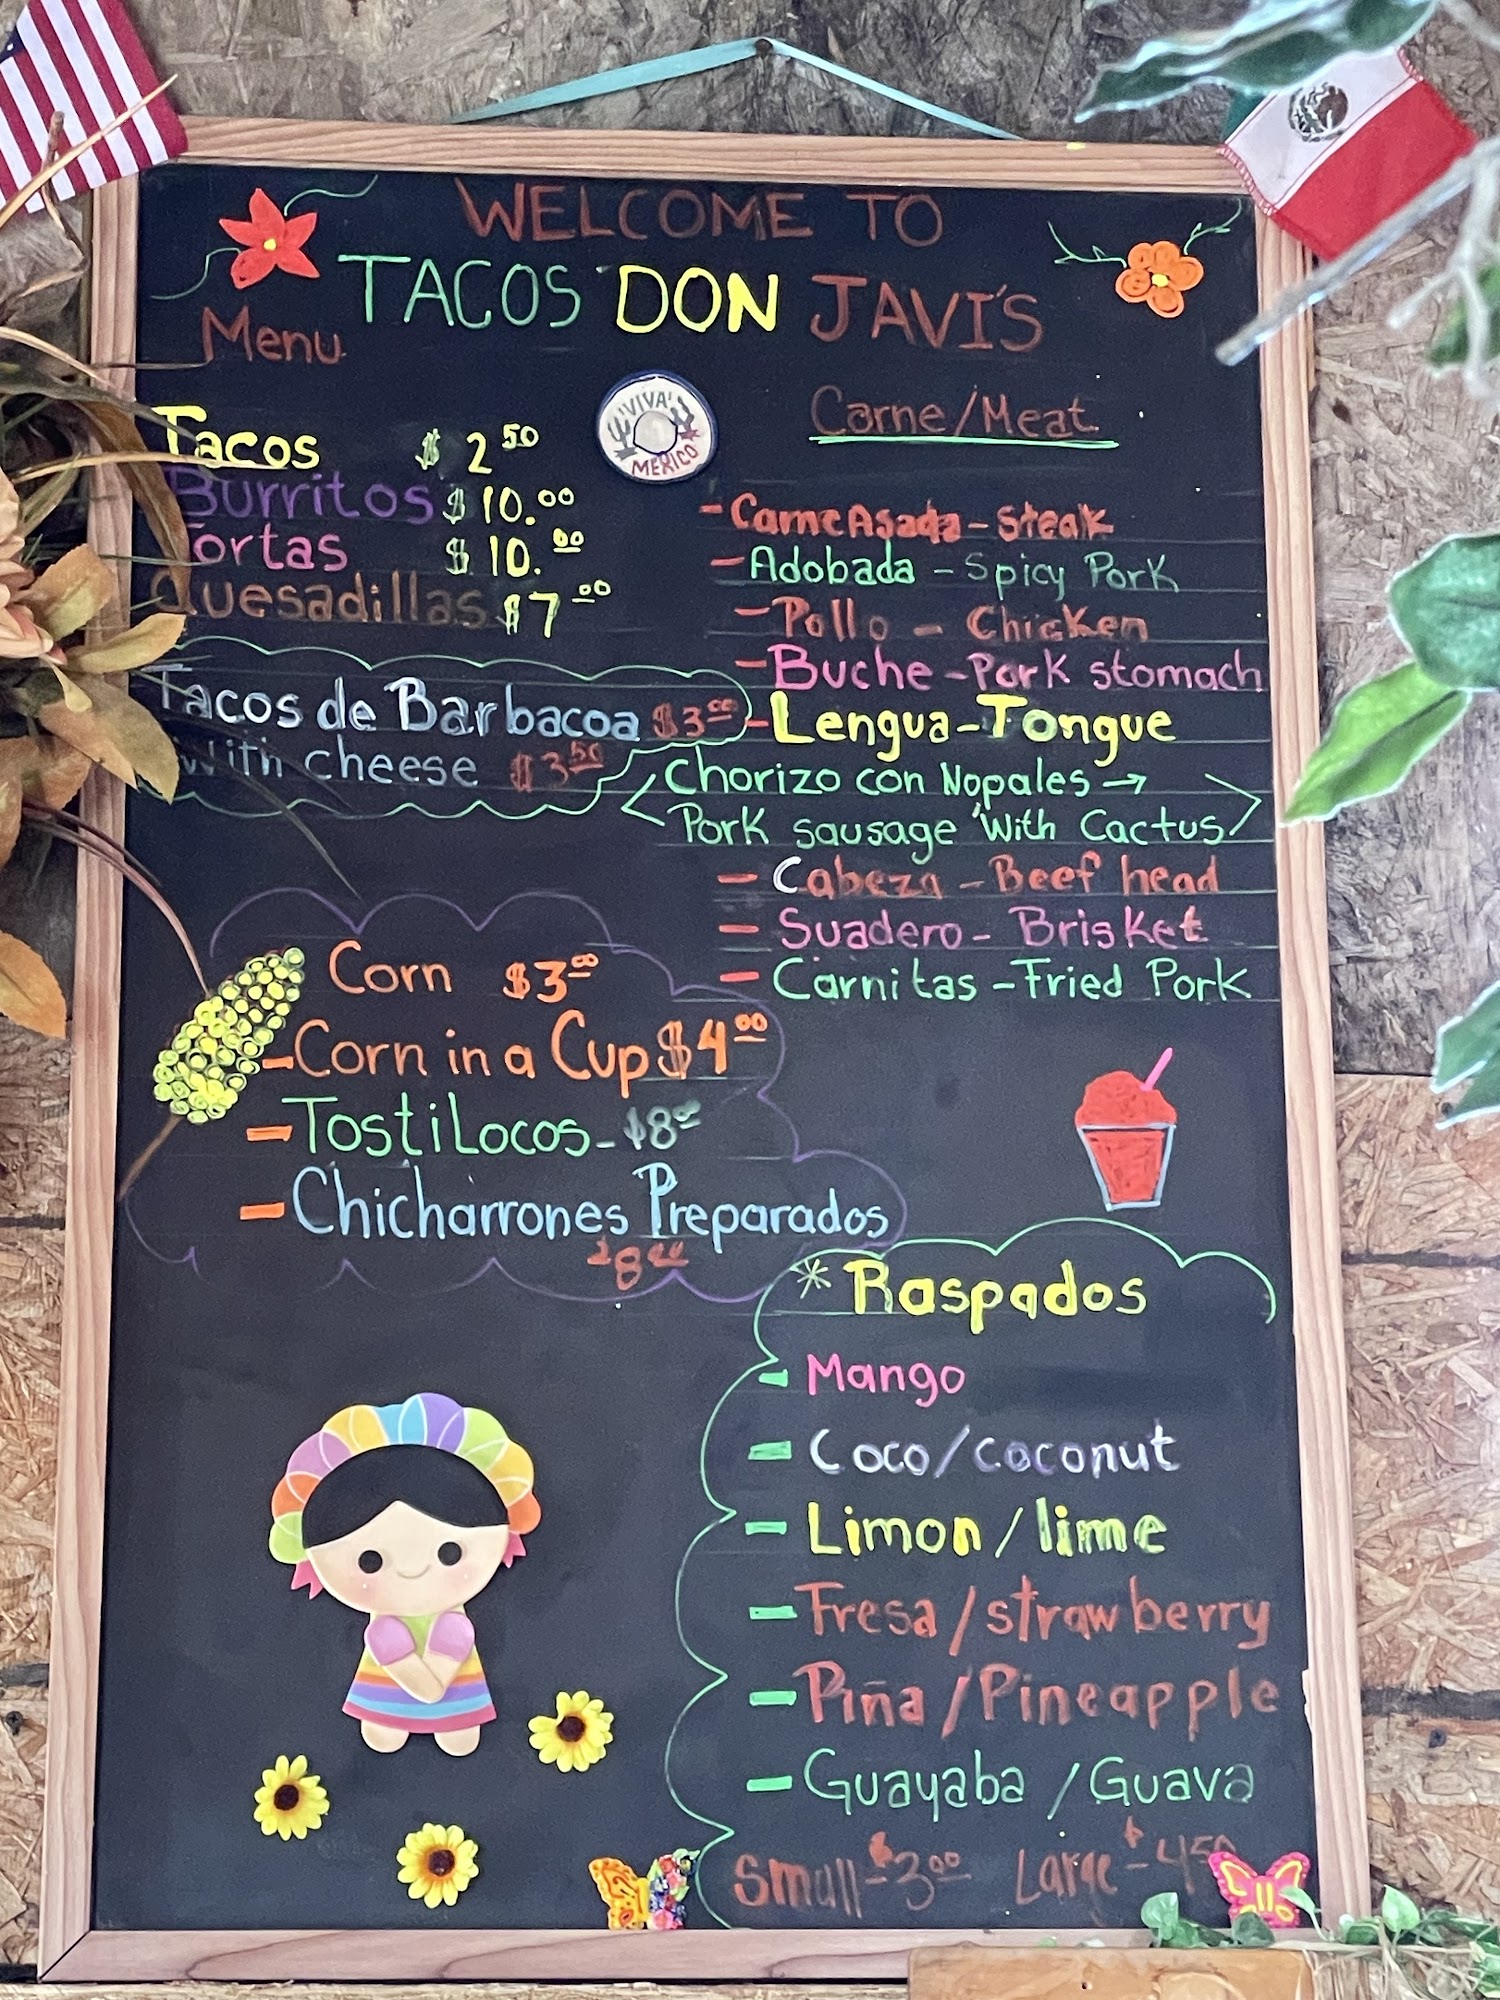 WELCOME TO
TACOS DON JAVI'S
Menu
Tacos $2.50
Burritos $10.00
Tortas $10.00
Quesadillas $7.00
Tacos de Barbacoa $3.00
With cheese $3.50
¡VIVA!
MEXICO
Carne/Meat
- Carne Asada - Steak
- Adobada - Spicy Pork
- Pollo - Chicken
- Buche - Pork stomach
- Lengua - Tongue
Chorizo con Nopales →
Pork sausage With Cactus
- Cabeza - Beef head
- Suadero - Brisket
- Carnitas - Fried Pork
Corn $3.00
- Corn in a Cup $4.00
- TostiLocos - $8.00
- Chicharrones Preparados
$8.00
* Raspados
- Mango
- Coco/coconut
- Limon/lime
- Fresa/strawberry
- Piña/Pineapple
- Guayaba/Guava
Small - $3.00 Large - $4.50